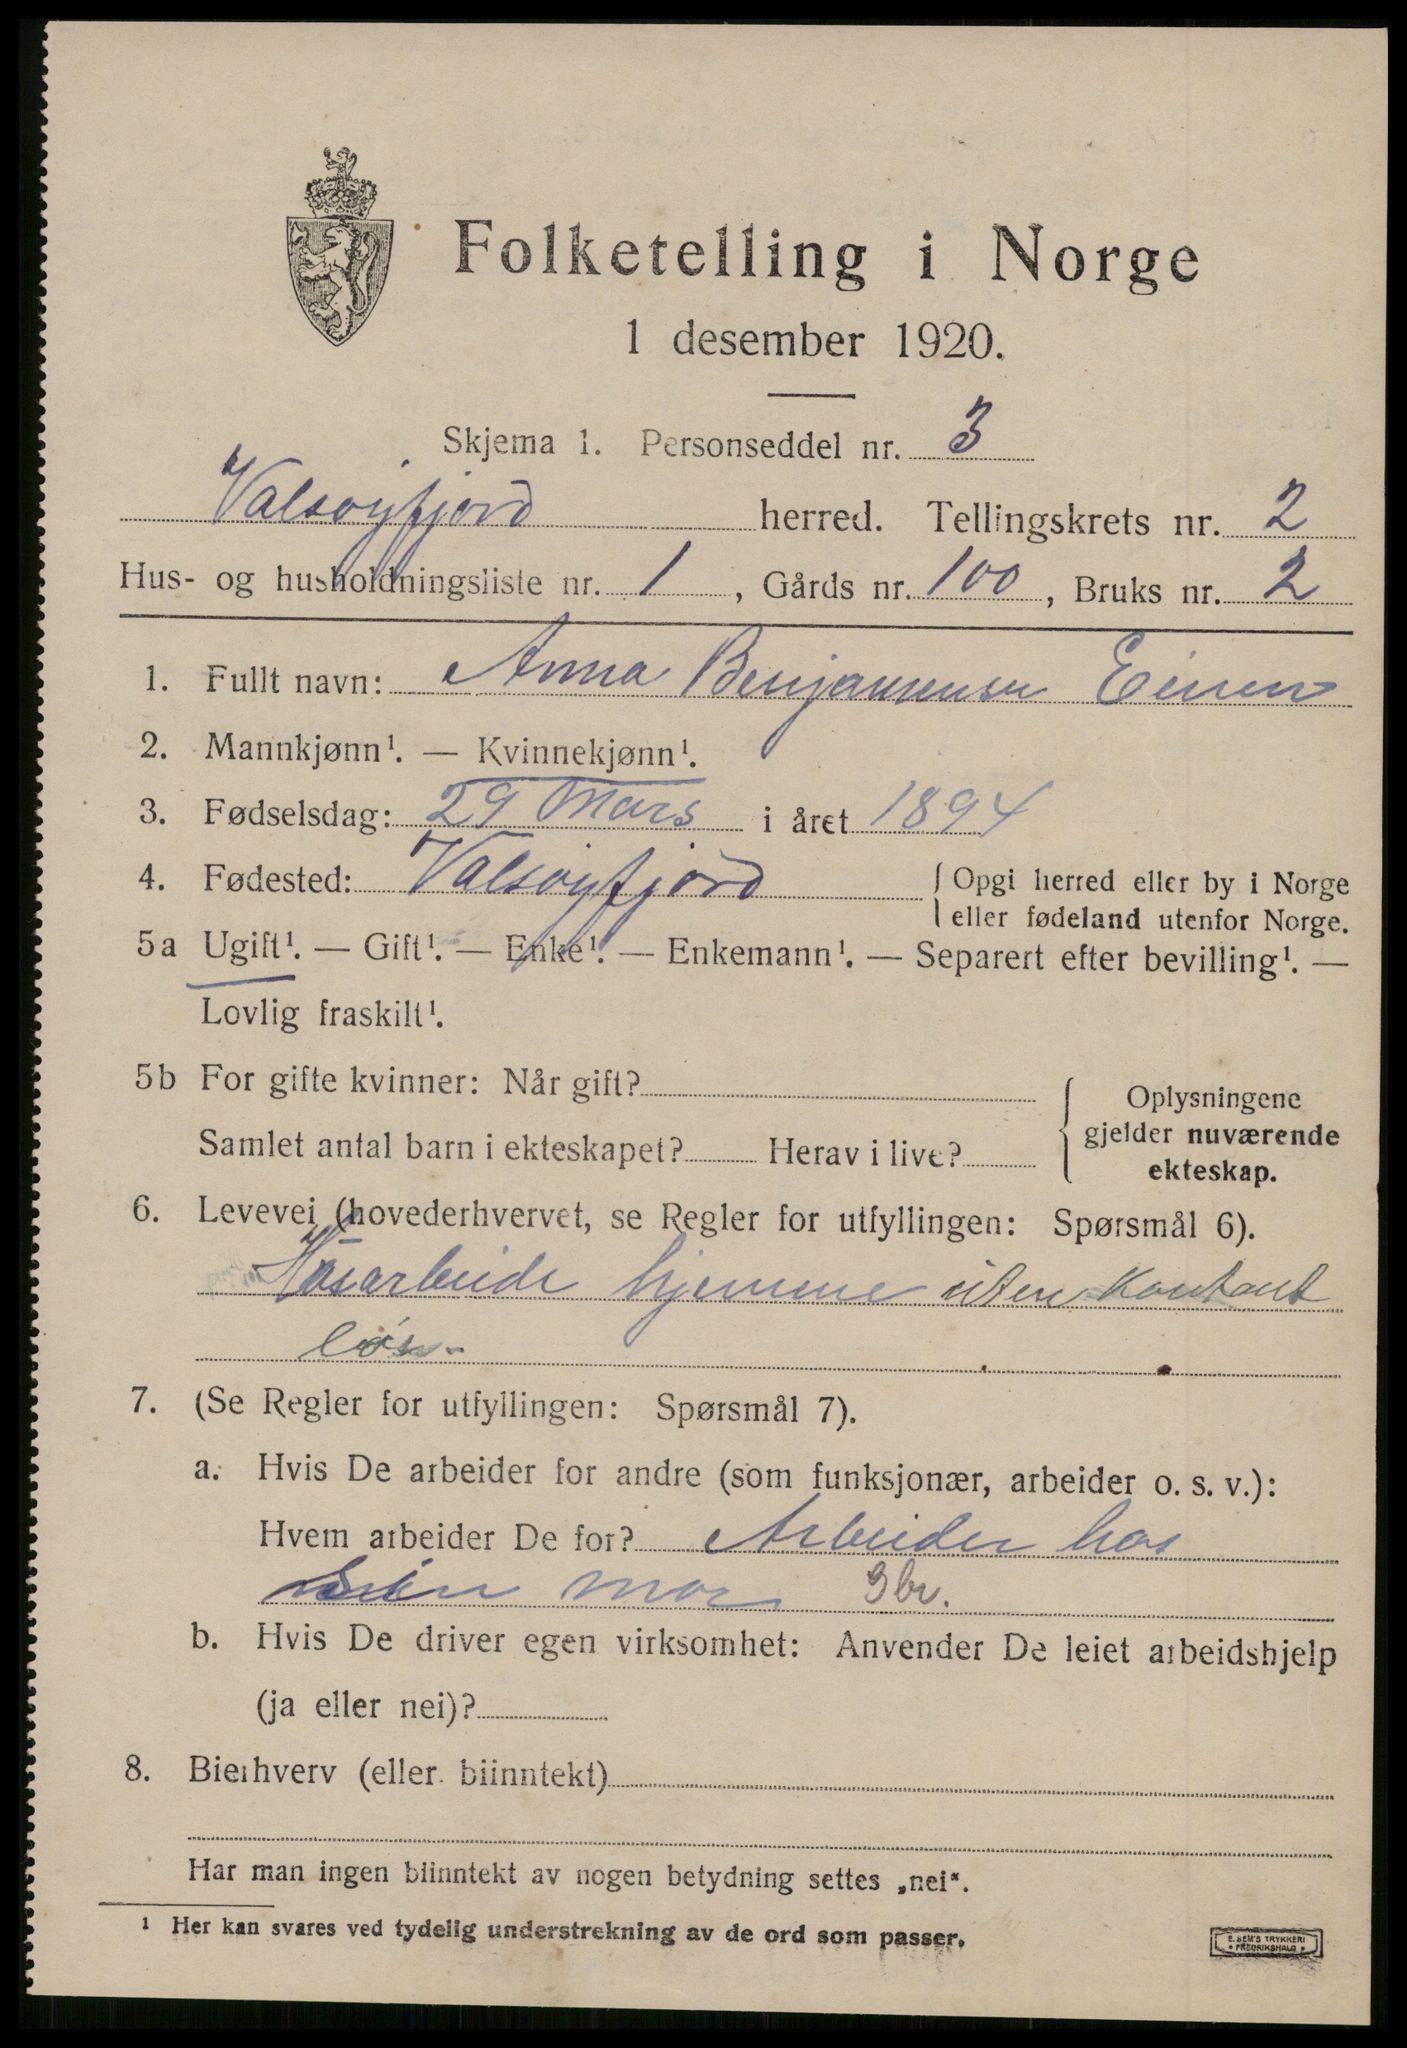 Folketelling i Norge
1 desember 1920.
Skjema 1. Personseddel nr. 3
Valsøyfjord herred. Tellingskrets nr. 2
Hus- og husholdningsliste nr. 1, Gårds nr. 100, Bruks nr. 2
1. Fullt navn: Anna Benjaminsen
2. Mannkjønn¹. — Kvinnekjønn¹.
3. Fødselsdag: 29 Mars i året 1894
4. Fødested: Valsøyfjord { Opgi herred eller by i Norge
eller fødeland utenfor Norge.
5a Ugift¹. — Gift¹. — Enke¹. — Enkemann¹. — Separert efter bevilling¹. —
Lovlig fraskilt¹.
5b For gifte kvinner: Når gift?
Samlet antal barn i ekteskapet? Herav i live?
{ Oplysningene
gjelder nuværende
ekteskap.
6. Levevei (hovederhvervet, se Regler for utfyllingen: Spørsmål 6).
Husarbeide hjemme uten kontant
løn.
7. (Se Regler for utfyllingen: Spørsmål 7).
a. Hvis De arbeider for andre (som funksjonær, arbeider o. s. v.):
Hvem arbeider De for? Arbeider hos
sin mor gbr.
b. Hvis De driver egen virksomhet: Anvender De leiet arbeidshjelp
(ja eller nei)?
8. Bierhverv (eller biinntekt)
Har man ingen biinntekt av nogen betydning settes „nei".
¹ Her kan svares ved tydelig understrekning av de ord som passer.
E. SEM'S TRYKKERI
• FREDRIKSHALD •